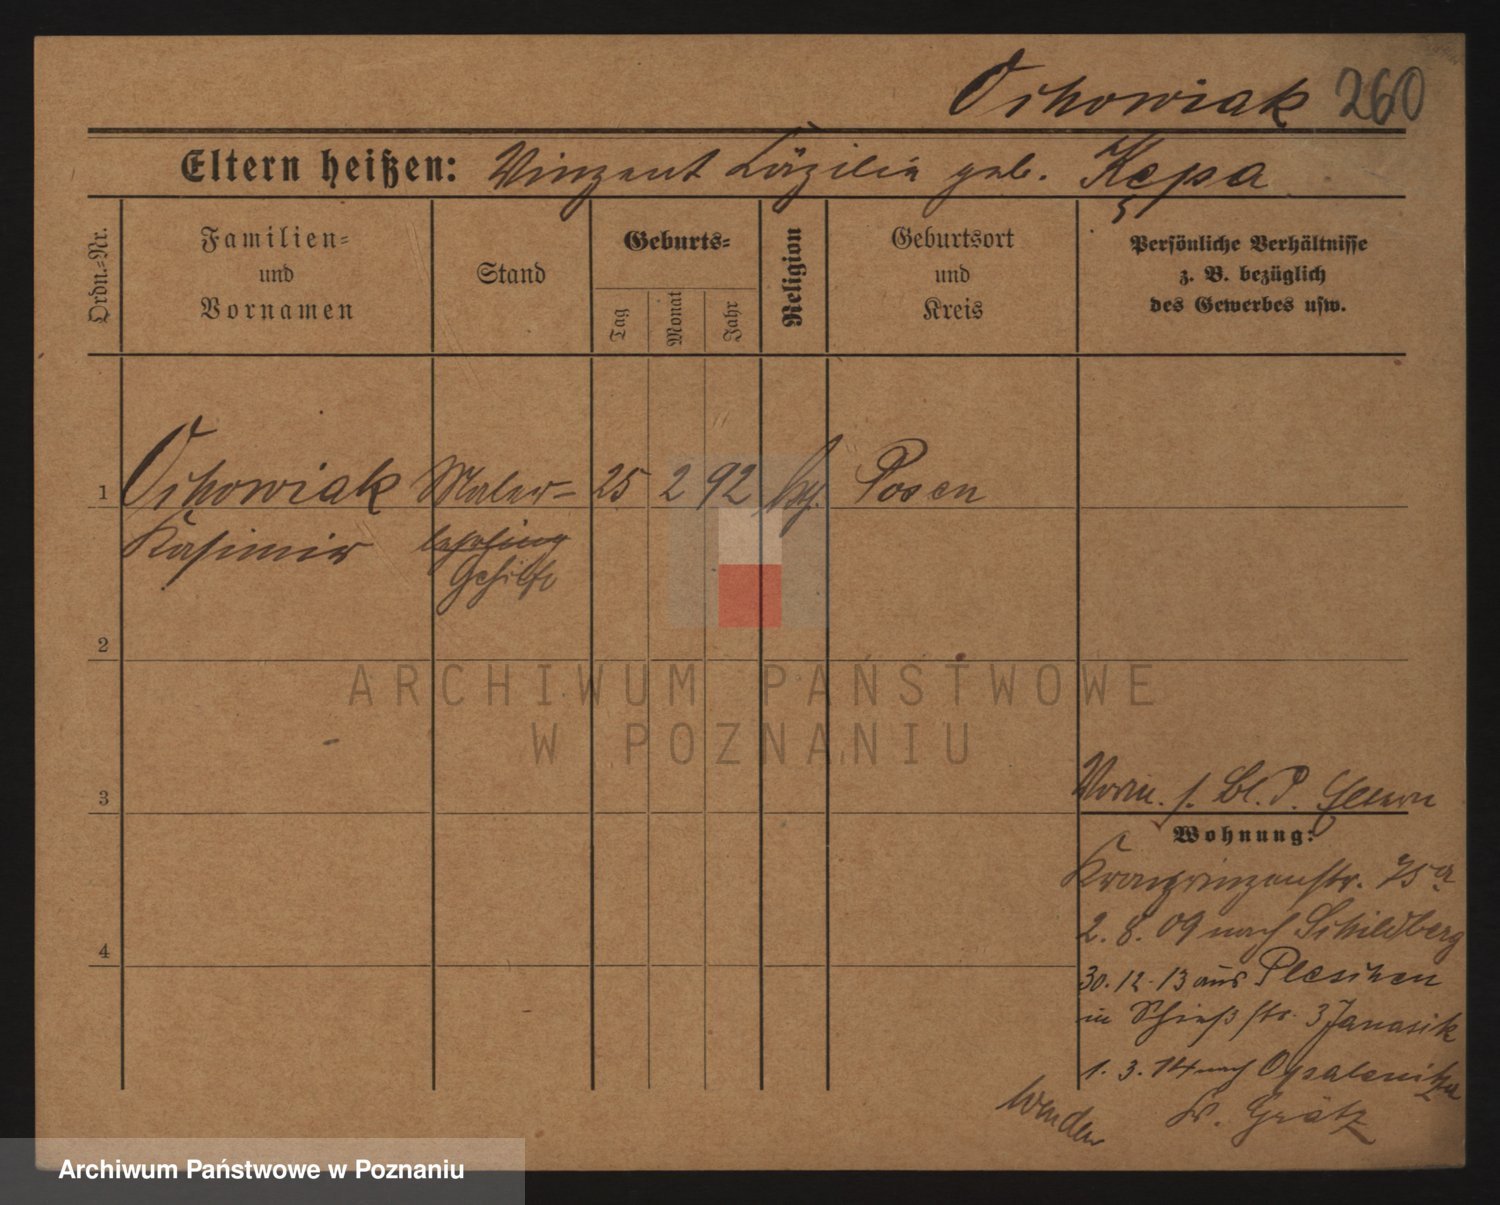 Ochowiak 260
Eltern heißen: Vinzent Cäzilia geb. Kępa
Ordn.-Nr.
Familien-
und
Vornamen
Stand
Geburts-
Tag
Monat
Jahr
Religion
Geburtsort
und
Kreis
Persönliche Verhältnisse
z. B. bezüglich
des Gewerbes usw.
1 Ochowiak Maler- 25 2 92 kth. Posen
Kasimir lehrling
Gehilfe
2
3
4
Vorm. s. Bl. d. Eltern
Wohnung:
Kronprinzenstr. 75a
2. 8. 09 nach Schildberg
30. 12. 13 aus Pleschen
in Schießstr. 3 Janasik
1. 3. 14 nach Opalenitza
Kr. Grätz
Wenden
ARCHIWUM PAŃSTWOWE
W POZNANIU
Archiwum Państwowe w Poznaniu